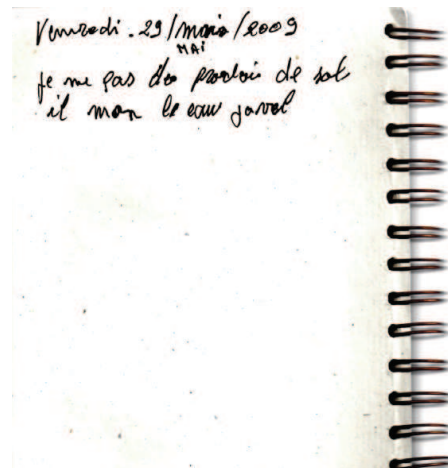 Vendredi . 29/mais/2009
MAI
je me pas do prodoi de sol
il man le eau javel